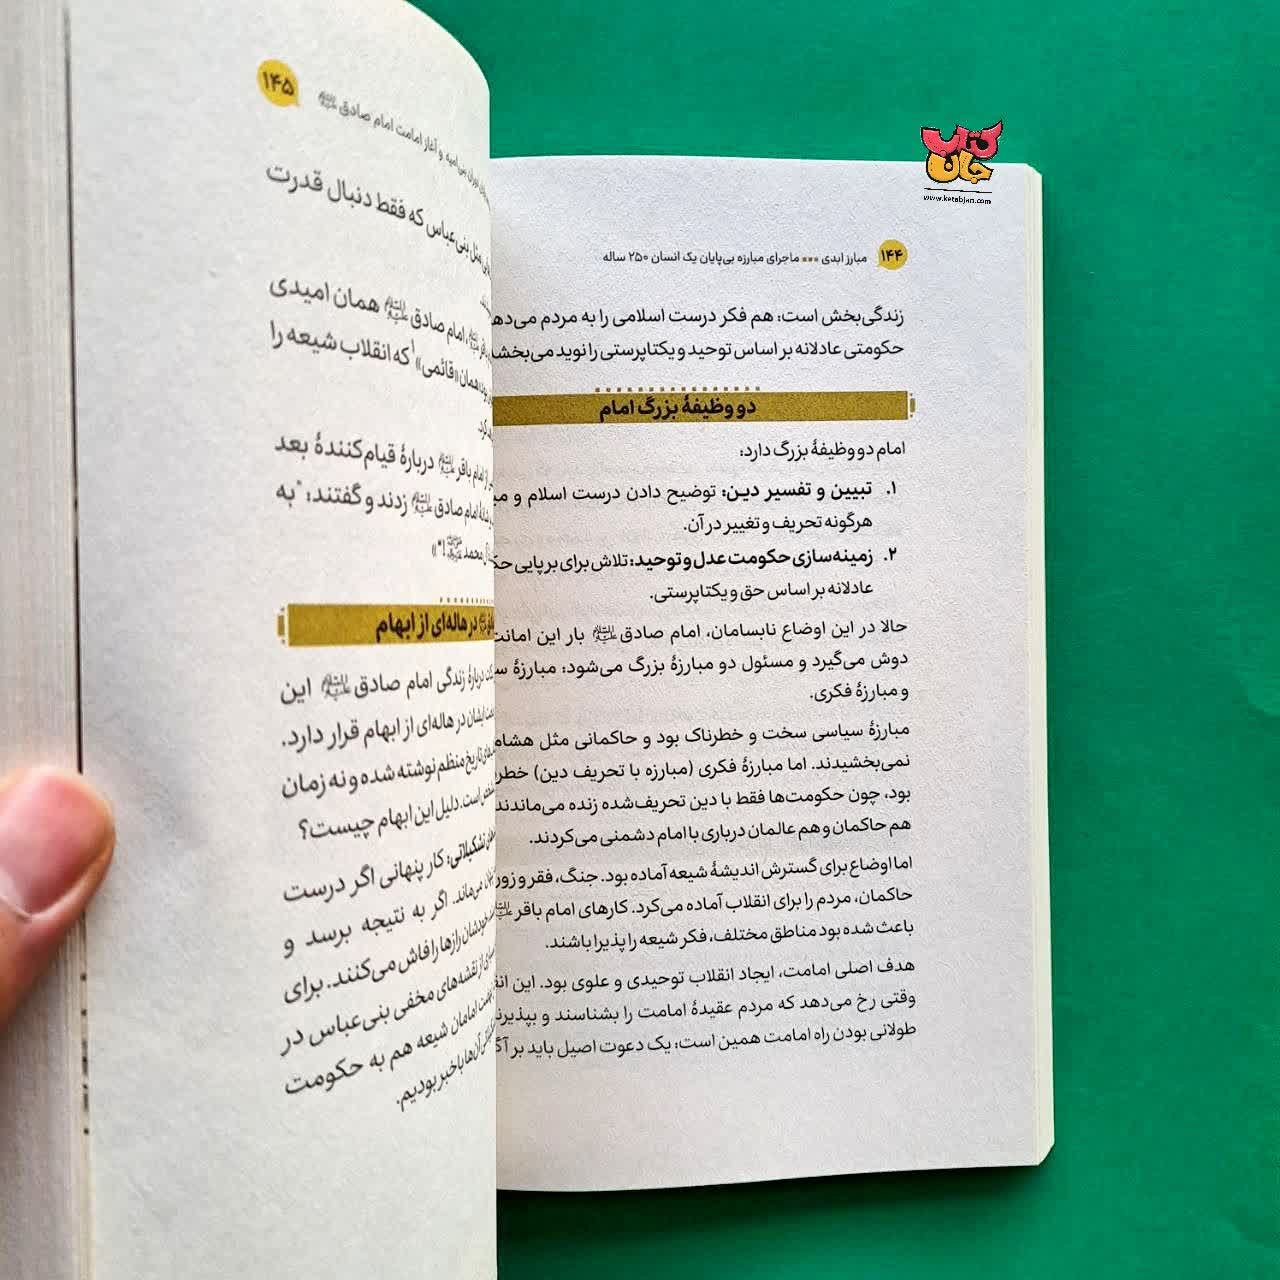 کتاب جان
www.ketabjan.com
۱۴۴ مبارز ابدی ماجرای مبارزه بی‌پایان یک انسان ۲۵۰ ساله
زندگی‌بخش است: هم فکر درست اسلامی را به مردم می‌دهد
حکومتی عادلانه بر اساس توحید و یکتاپرستی را نوید می‌بخشد
دو وظیفهٔ بزرگ امام
امام دو وظیفهٔ بزرگ دارد:
۱. تبیین و تفسیر دین: توضیح دادن درست اسلام و
هرگونه تحریف و تغییر در آن.
۲. زمینه‌سازی حکومت عدل و توحید: تلاش برای برپایی
عادلانه بر اساس حق و یکتاپرستی.
حالا در این اوضاع نابسامان، امام صادق علیه‌السلام بار این امانت
دوش می‌گیرد و مسئول دو مبارزهٔ بزرگ می‌شود: مبارزهٔ
و مبارزهٔ فکری.
مبارزهٔ سیاسی سخت و خطرناک بود و حاکمانی مثل هشام
نمی‌بخشیدند. اما مبارزهٔ فکری (مبارزه با تحریف دین)
بود، چون حکومت‌ها فقط با دین تحریف‌شده زنده می‌ماندند
هم حاکمان و هم عالمان درباری با امام دشمنی می‌کردند.
اما اوضاع برای گسترش اندیشهٔ شیعه آماده بود. جنگ، فقر و زور
حاکمان، مردم را برای انقلاب آماده می‌کرد. کارهای امام باقر
باعث شده بود مناطق مختلف، فکر شیعه را پذیرا باشند.
هدف اصلی امامت، ایجاد انقلاب توحیدی و علوی بود. این
وقتی رخ می‌دهد که مردم عقیدهٔ امامت را بشناسند و بپذیرند
طولانی بودن راه امامت همین است: یک دعوت اصیل باید بر
بنی‌امیه و آغاز امامت امام صادق علیه‌السلام ۱۴۵
مثل بنی‌عباس که فقط دنبال قدرت
امام صادق علیه‌السلام همان امیدی
همان «قائمی»۱ که انقلاب شیعه را
از امام باقر علیه‌السلام دربارهٔ قیام‌کنندهٔ بعد
امام صادق علیه‌السلام زدند و گفتند: "به
آل محمد !"»
در هاله‌ای از ابهام
دربارهٔ زندگی امام صادق علیه‌السلام این
ایشان در هاله‌ای از ابهام قرار دارد.
تاریخ منظم نوشته شده و نه زمان
است. دلیل این ابهام چیست؟
تشکیلاتی: کار پنهانی اگر درست
می‌ماند. اگر به نتیجه برسد و
خودشان رازها را فاش می‌کنند. برای
از نقشه‌های مخفی بنی‌عباس در
امامان شیعه هم به حکومت
آن‌ها باخبر بودیم.